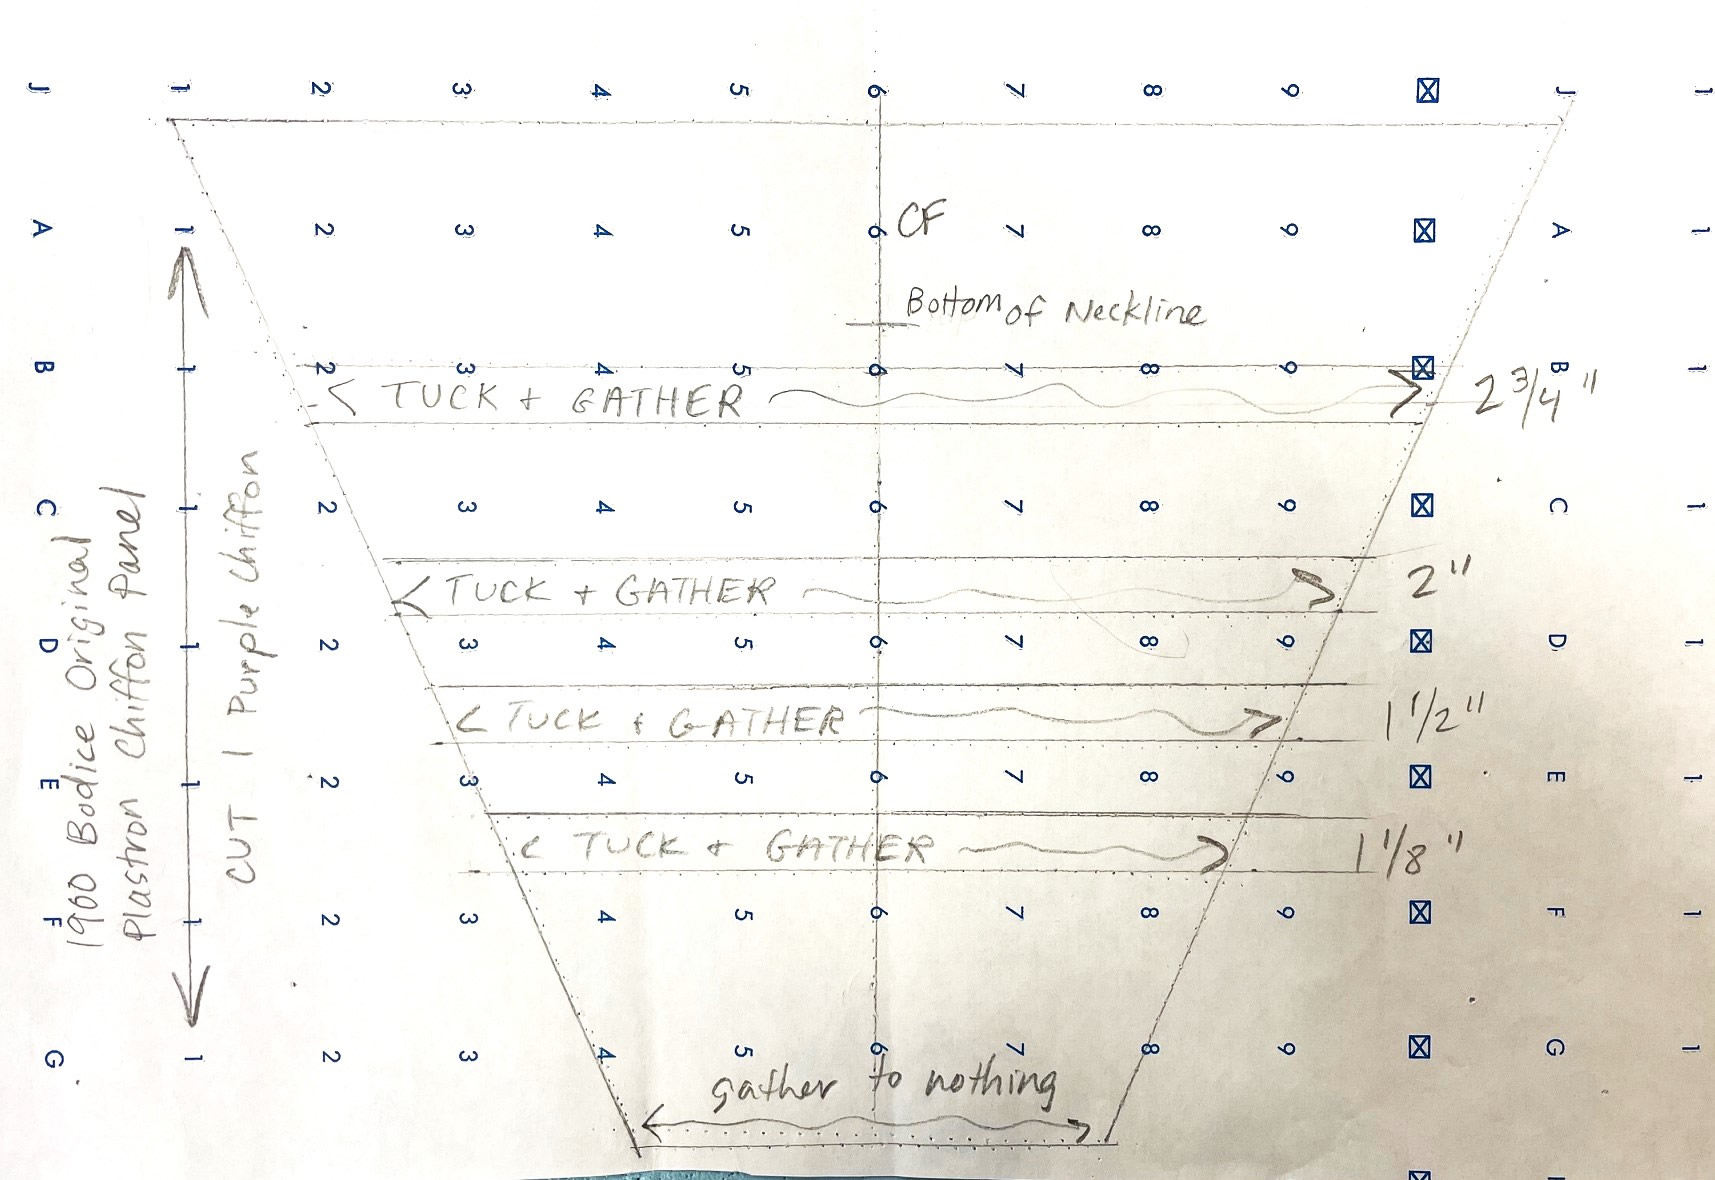 J 1 2 3 4 5 6 7 8 9 J 1
A 1 2 3 4 5 6 CF 7 8 9 A 1
Bottom of Neckline
B 1 2 3 4 5 6 7 8 9 B 1
TUCK + GATHER 2 3/4"
C 1 2 3 4 5 6 7 8 9 C 1
TUCK + GATHER 2"
D 1 2 3 4 5 6 7 8 9 D 1
TUCK + GATHER 1 1/2"
E 1 2 3 4 5 6 7 8 9 E 1
TUCK + GATHER 1 1/8"
F 1 2 3 4 5 6 7 8 9 F 1
G 1 2 3 4 5 6 7 8 9 G 1
gather to nothing
1900 Bodice Original
Plastron Chiffon Panel
CUT 1 Purple Chiffon